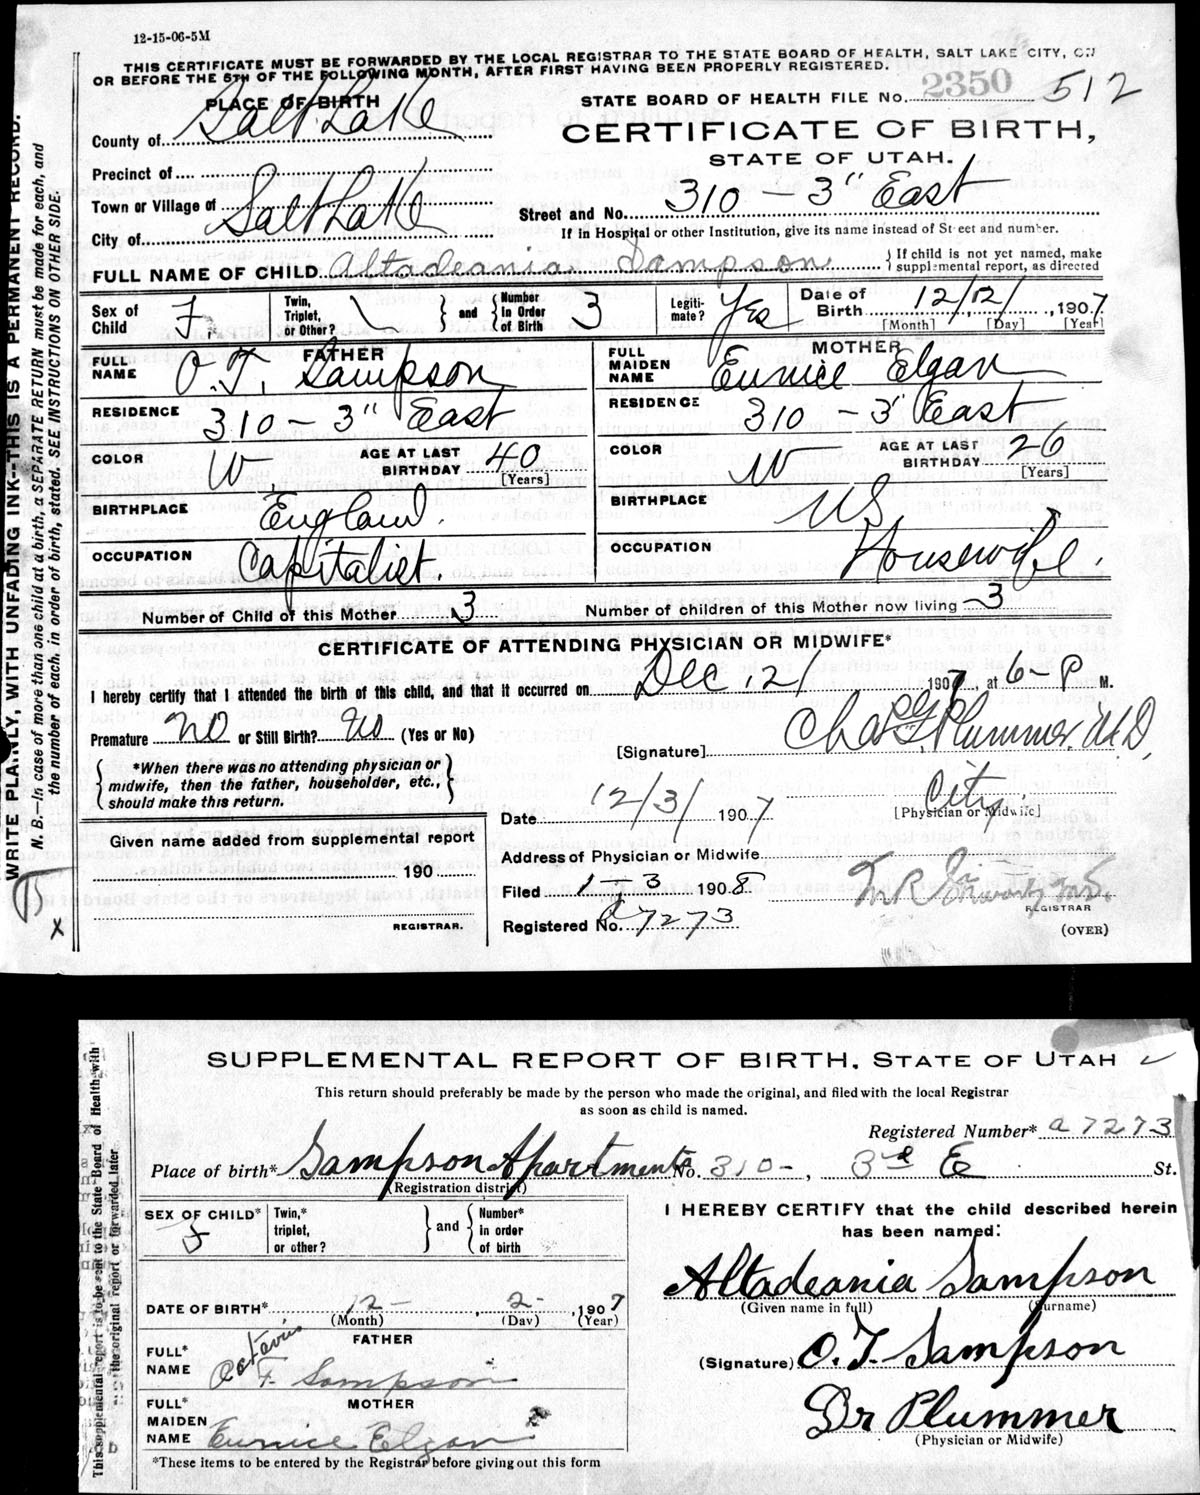 12-15-06-5M
THIS CERTIFICATE MUST BE FORWARDED BY THE LOCAL REGISTRAR TO THE STATE BOARD OF HEALTH, SALT LAKE CITY, ON
OR BEFORE THE 5TH OF THE FOLLOWING MONTH, AFTER FIRST HAVING BEEN PROPERLY REGISTERED.
PLACE OF BIRTH
STATE BOARD OF HEALTH FILE No. 2350 512
County of Salt Lake
CERTIFICATE OF BIRTH,
STATE OF UTAH.
Precinct of
Town or Village of
City of Salt Lake
Street and No. 310 - 3" East
If in Hospital or other Institution, give its name instead of Street and number.
FULL NAME OF CHILD Altadeania Sampson
If child is not yet named, make supplemental report, as directed
Sex of Child F.
Twin, Triplet, or Other? and Number in Order of Birth 3
Legitimate? Yes
Date of Birth 12/12/, 1907
[Month] [Day] [Year]
FATHER
FULL NAME O. F. Sampson
RESIDENCE 310 - 3" East
COLOR W.
AGE AT LAST BIRTHDAY 40 [Years]
BIRTHPLACE England.
OCCUPATION Capitalist.
MOTHER
FULL MAIDEN NAME Eunice Elgan
RESIDENCE 310 - 3" East
COLOR W
AGE AT LAST BIRTHDAY 26 [Years]
BIRTHPLACE US
OCCUPATION Housewife.
Number of Child of this Mother 3
Number of children of this Mother now living 3
CERTIFICATE OF ATTENDING PHYSICIAN OR MIDWIFE*
I hereby certify that I attended the birth of this child, and that it occurred on Dec 12/ 1907, at 6-P M.
Premature No or Still Birth? No (Yes or No)
[Signature] Chas G. Plummer M.D.
*When there was no attending physician or
midwife, then the father, householder, etc.,
should make this return.
Date 12/3/ 1907
City.
[Physician or Midwife]
Given name added from supplemental report
190
REGISTRAR.
Address of Physician or Midwife
Filed 1-3 1908
REGISTRAR
Registered No. a7273
(OVER)
WRITE PLAINLY, WITH UNFADING INK--THIS IS A PERMANENT RECORD.
N. B.--In case of more than one child at birth, a SEPARATE RETURN must be made for each, and
the number of each, in order of birth, stated. SEE INSTRUCTIONS ON OTHER SIDE.
X
SUPPLEMENTAL REPORT OF BIRTH, STATE OF UTAH
This return should preferably be made by the person who made the original, and filed with the local Registrar
as soon as child is named.
Registered Number* a7273
Place of birth* Sampson Apartments No. 310-, 3rd E St.
(Registration district)
SEX OF CHILD* F
Twin,* triplet, or other? and Number* in order of birth
DATE OF BIRTH* 12-, 2-, 1907
(Month) (Day) (Year)
FATHER
FULL* NAME Octavius F. Sampson
MOTHER
FULL* MAIDEN NAME Eunice Elgan
*These items to be entered by the Registrar before giving out this form
I HEREBY CERTIFY that the child described herein
has been named:
Altadeania Sampson
(Given name in full) (Surname)
(Signature) O. F. Sampson
Dr Plummer
(Physician or Midwife)
This supplemental report is to be sent to the State Board of Health with
the original report or forwarded later